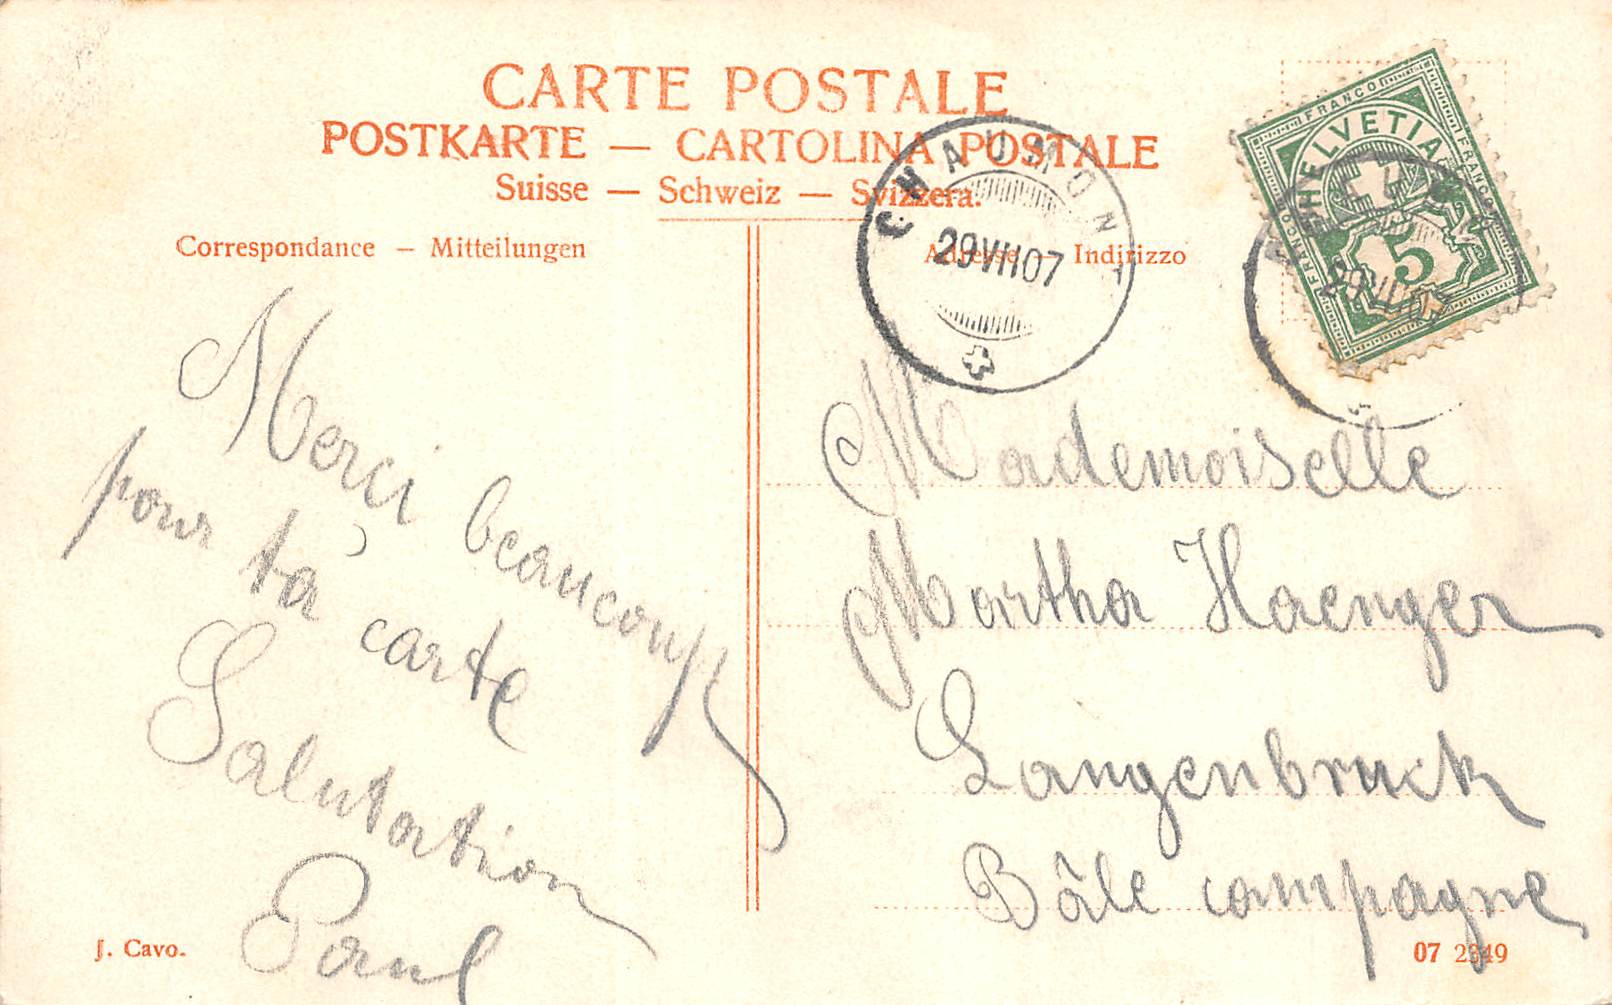 CARTE POSTALE
POSTKARTE — CARTOLINA POSTALE
Suisse — Schweiz — Svizzera.
Correspondance — Mitteilungen
Adresse — Indirizzo
CHAUMONT
29 VII 07
FRANCO
FRANCO
FRANCO
HELVETIA
5
29 VII 07
Merci beaucoup
pour ta carte
Salutation
Paul
Mademoiselle
Martha Haenger
Langenbruck
Bâle campagne
J. Cavo.
07 2349